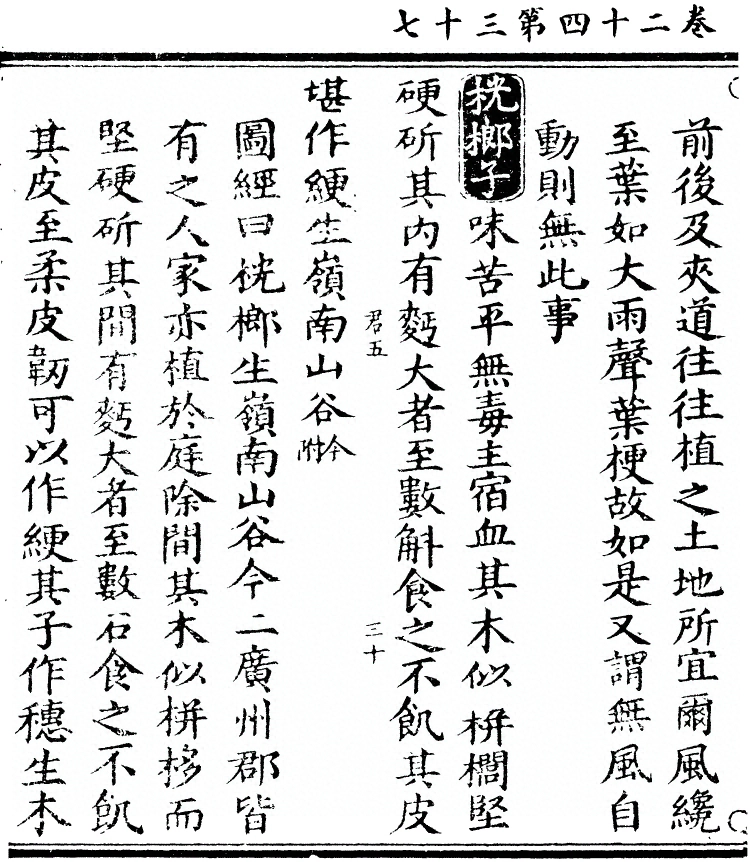 卷二十四第三十七
前後及夾道往往植之土地所宜爾風纔
至葉如大雨聲葉梗故如是又謂無風自
動則無此事
桄榔子味苦平無毒主宿血其木似栟櫚堅
硬斫其内有麪大者至數斛食之不飢其皮
君五
三十
堪作綆生嶺南山谷今附
圖經曰桄榔生嶺南山谷今二廣州郡皆
有之人家亦植於庭除間其木似栟櫚而
堅硬斫其間有麪大者至數石食之不飢
其皮至柔皮韌可以作綆其子作穗生木